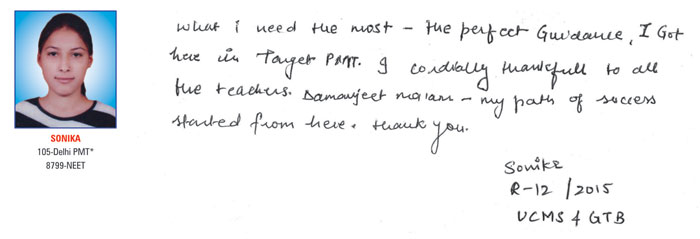 SONIKA
105-Delhi PMT*
8799-NEET
What i need the most – the perfect Guidance, I Got
here in Target PMT. I cordially thankfull to all
the teachers. Damanjeet mam – my path of success
started from here. thank you.
Sonika
R-12 / 2015
UCMS & GTB